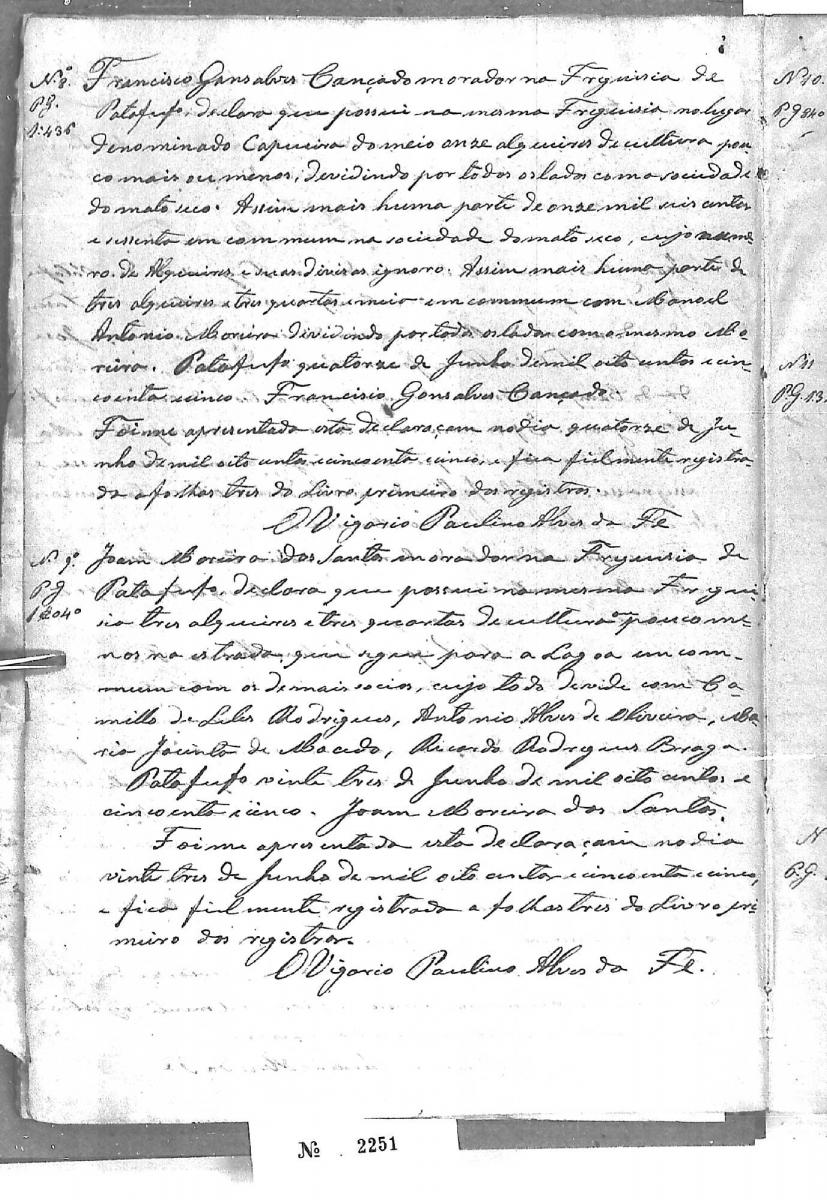 Nº 8.
Pg.
1:436
Francisco Gonsalves Cançado morador na Freguisia de
Patafufo, declara que possui na mesma Freguisia no lugar
denominado Capueira do meio onze alqueires de cultura pou-
co mais ou menos, devidindo por todos os lados com a sociedade
do mato seco. Assim mais huma parte de onze mil seis centos
e sessenta em commum na sociedade do mato seco, cujo nume-
ro de Alqueires e suas divisas ignoro. Assim mais huma parte de
tres alqueires e tres quartas e meio em commum com Manoel
Antonio Moreira devidindo por todos os lados com o mesmo Mo-
reira. Patafufo quatorze de Junho de mil oito centos e cin-
coenta e cinco Francisco Gonsalves Cançado
Foi me apresentada esta declaraçam no dia quatorze de Ju-
nho de mil oito centos e cincoenta e cinco, e fica fielmente registra-
da a folhas tres do Livro primeiro dos registros.
O Vigario Paulino Alves da Fé
Nº 9º
Pg
Joam Moreira dos Santos morador na Freguisia de
Patafufo, declara que possui na mesma Fregui
sia tres alqueires e tres quartas de cultura pouco me-
nos na estrada que segue para a Lagoa em com-
mum com os demais socios, cujo todo devide com Ca-
millo de Leles Rodrigues, Antonio Alves de Oliveira, Ma
ria Jacinta de Macedo, Ricardo Rodrigues Braga.
Patafufo vinte tres de Junho de mil oito centos e
cincoenta e cinco. Joam Moreira dos Santos.
Foi me apresentada esta declaraçam no dia
vinte tres de Junho de mil oito centos e cincoenta e cinco,
e fica fielmente registrada a folhas tres do Livro pri-
meiro dos registros.
O Vigario Paulino Alves da Fé.
Nº 10.
Pg 240
Nº 11
Pg. 13
N
Pg.
Nº 2251